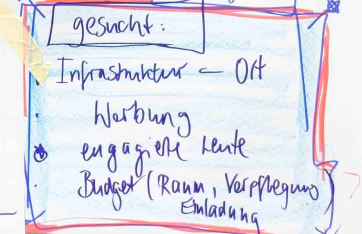 gesucht:
Infrastruktur – Ort
Werbung
engagierte Leute
Budget (Raum, Verpflegung)
Einladung